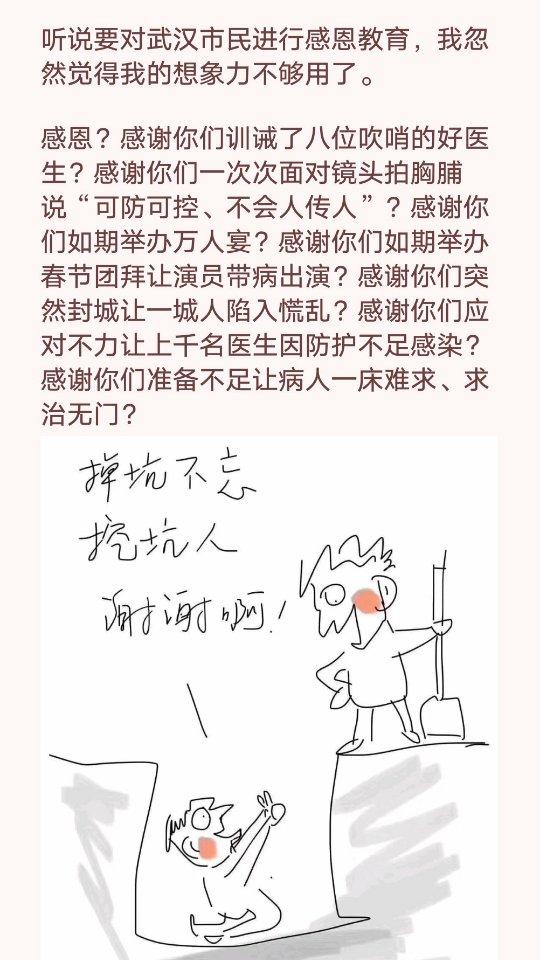 听说要对武汉市民进行感恩教育，我忽
然觉得我的想象力不够用了。
感恩？感谢你们训诫了八位吹哨的好医
生？感谢你们一次次面对镜头拍胸脯
说“可防可控、不会人传人”？感谢你
们如期举办万人宴？感谢你们如期举办
春节团拜让演员带病出演？感谢你们突
然封城让一城人陷入慌乱？感谢你们应
对不力让上千名医生因防护不足感染？
感谢你们准备不足让病人一床难求、求
治无门？
掉坑不忘
挖坑人
谢谢啊！